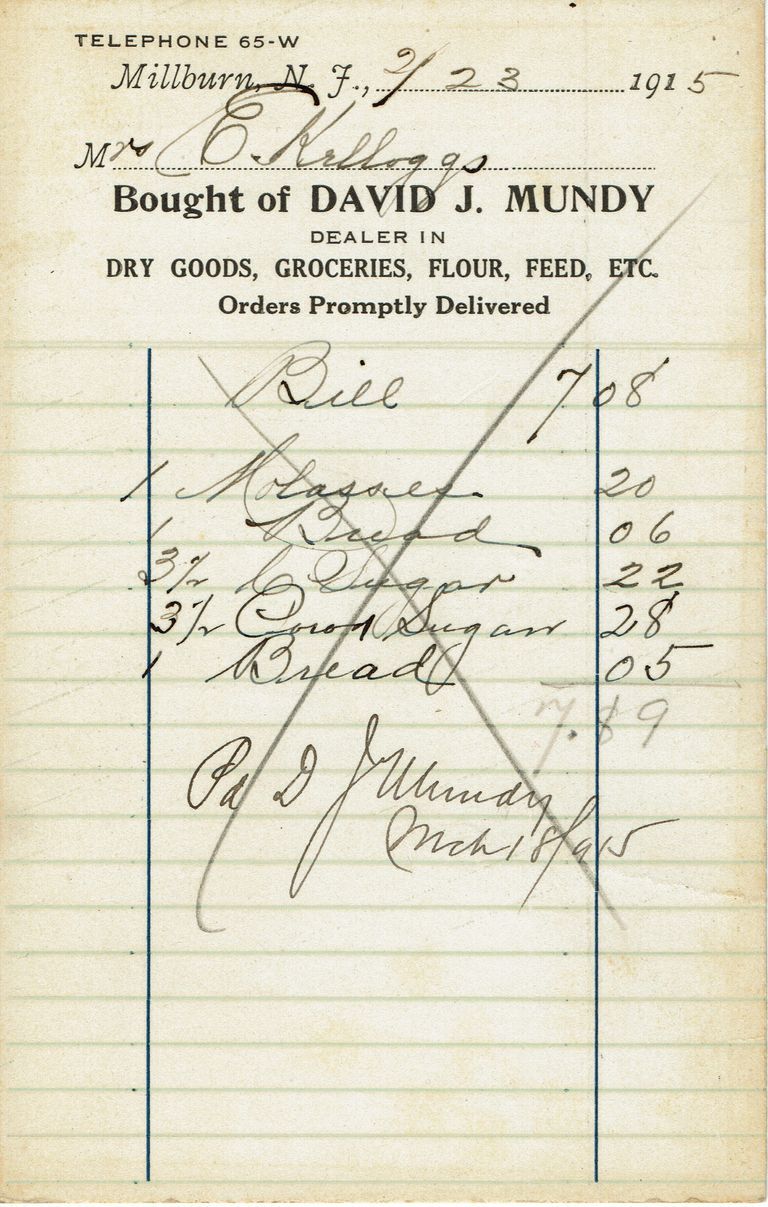 TELEPHONE 65-W
Millburn, N. J., 2/23 1915
Mrs E. Kelloggs
Bought of DAVID J. MUNDY
DEALER IN
DRY GOODS, GROCERIES, FLOUR, FEED, ETC.
Orders Promptly Delivered
Bill 7 08
1 Molasses 20
1 Bread 06
3½ Sugar 22
3½ Sugar 28
1 Bread 05
7.89
Pd D J Mundy
Mch 18/915